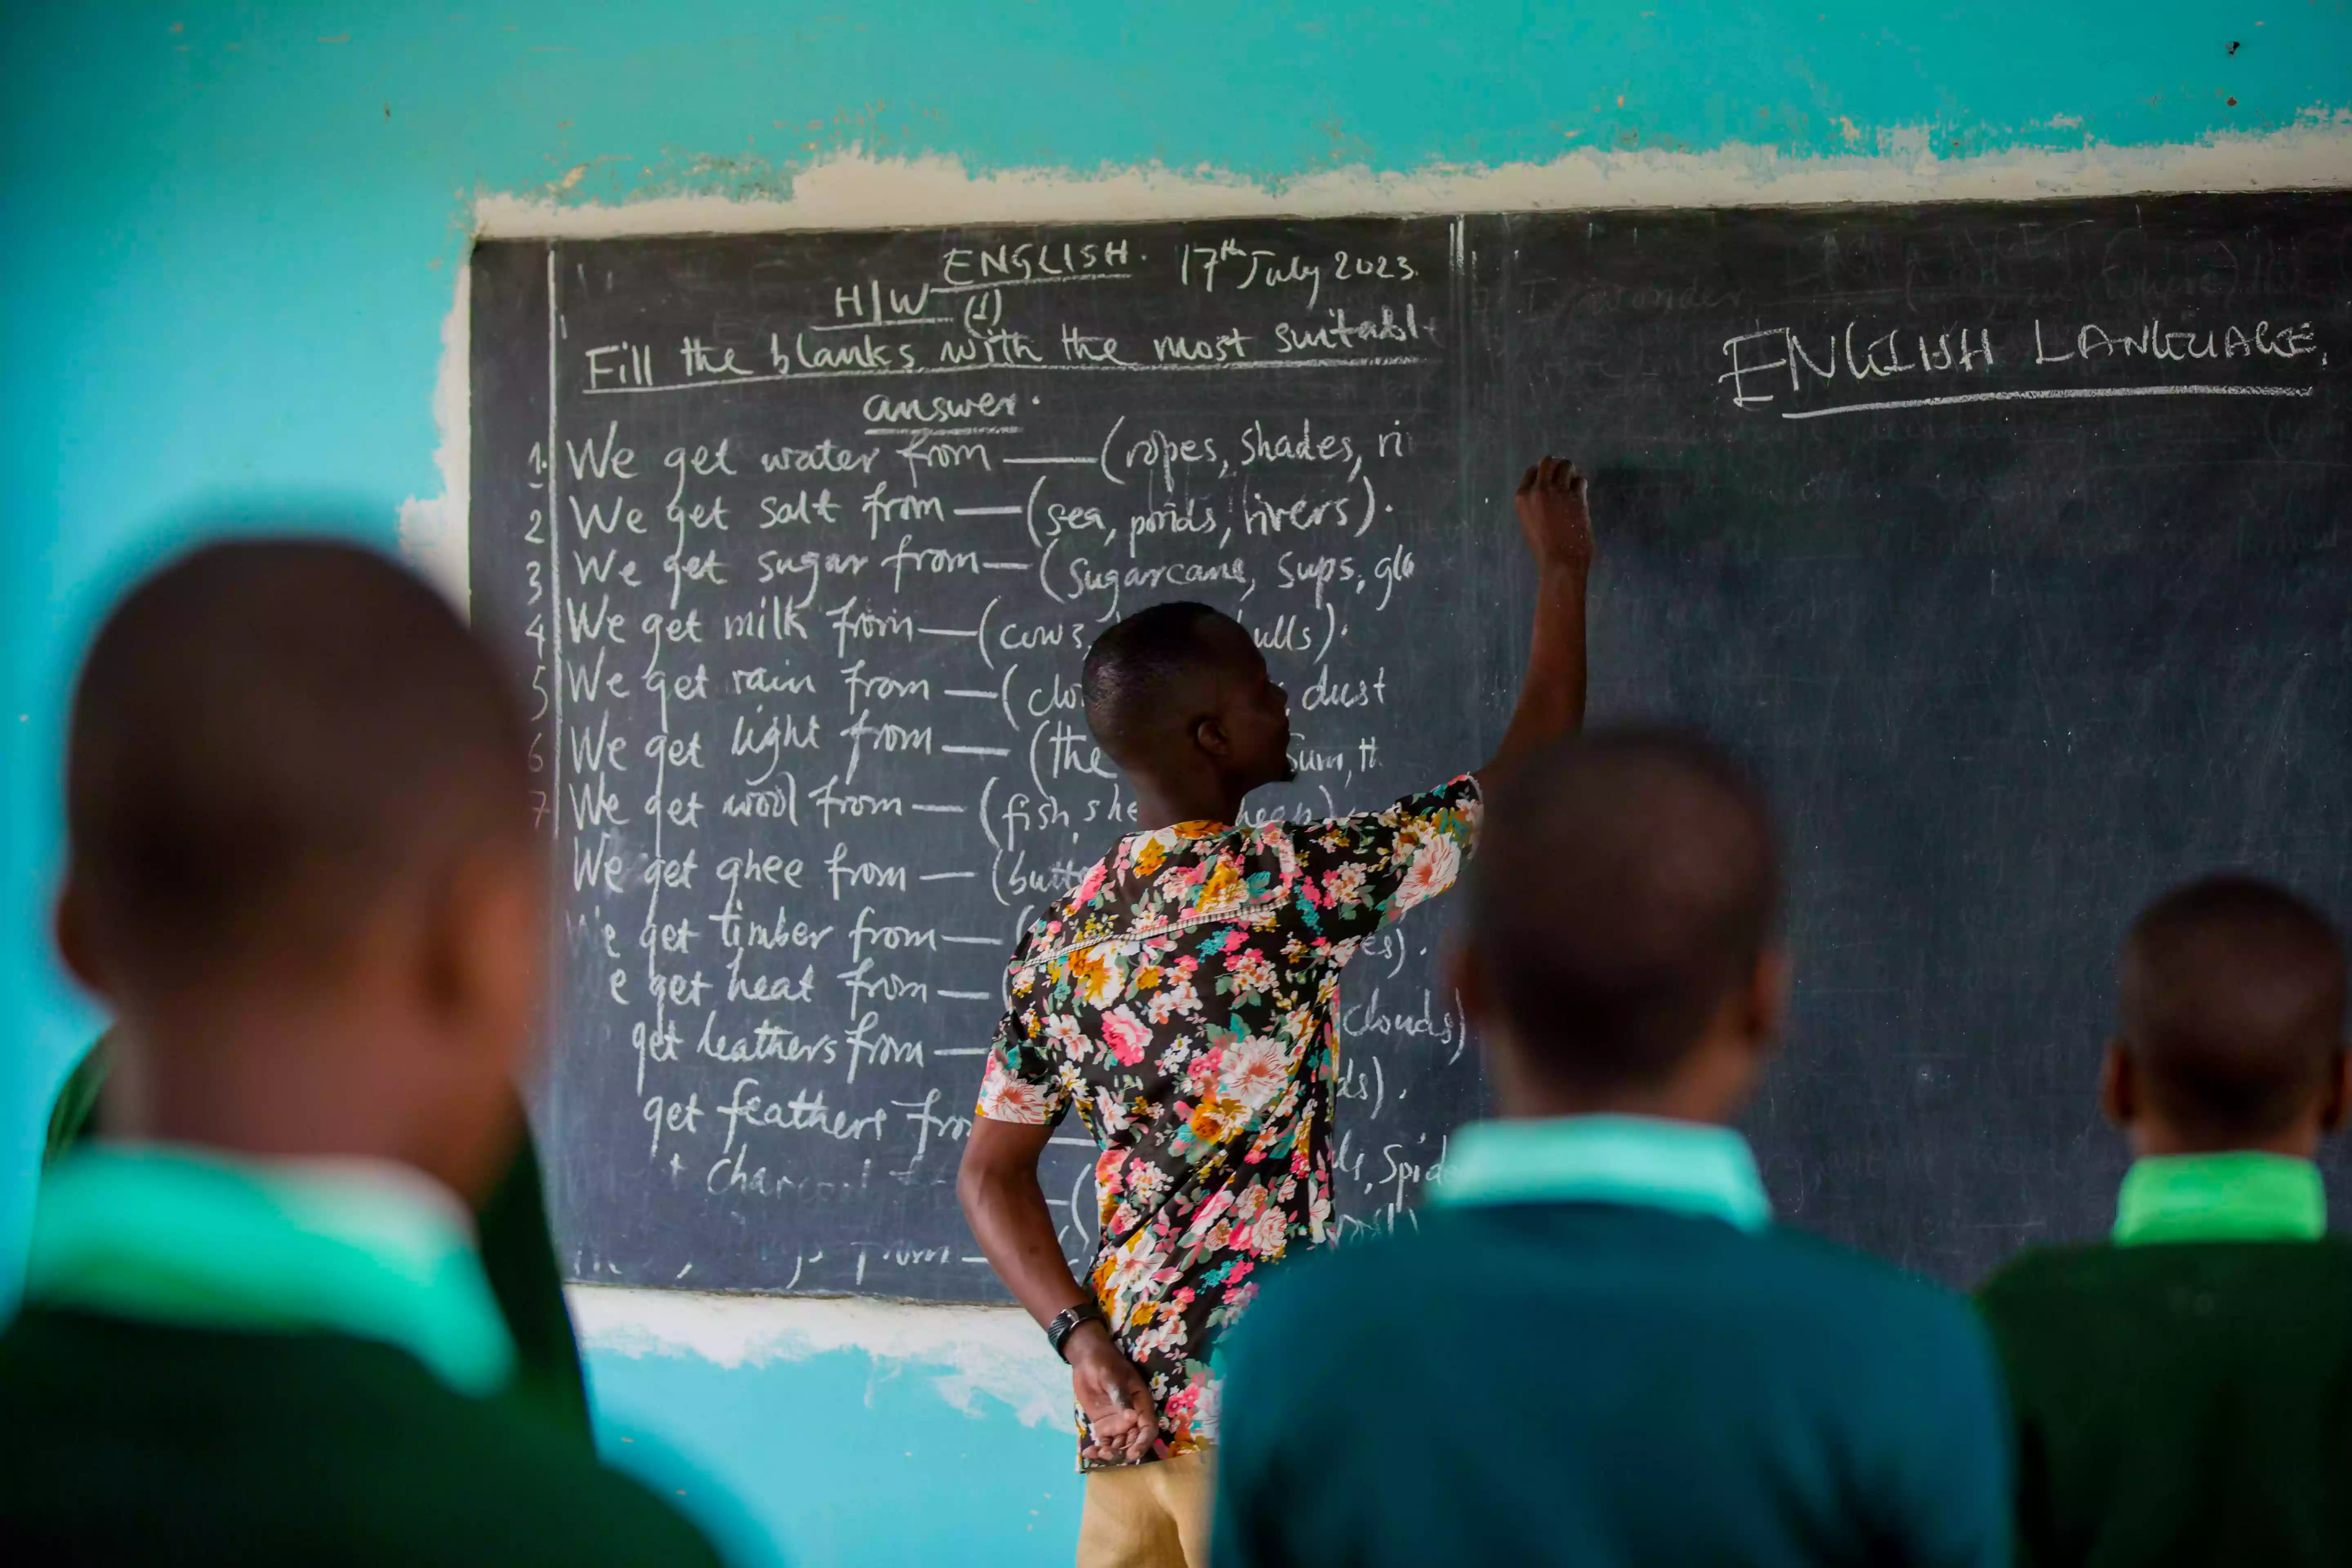 ENGLISH. 17th July 2023.
H/W (1)
Fill the blanks with the most suitabl
answer.
1. We get water from — (ropes, shades, ri
2 We get salt from — (sea, ponds, rivers).
3 We get sugar from — (Sugarcane, Sups, glo
4 We get milk from — (cows, ulls).
5 We get rain from — (clo dust
6 We get light from — (the Sun, th
7 We get wool from — (fish, she heep)
We get ghee from — (butte
We get timber from — ( es).
e get heat from — ( clouds)
get leathers from — ds).
get feathers fro — Spide
ENGLISH LANGUAGE.